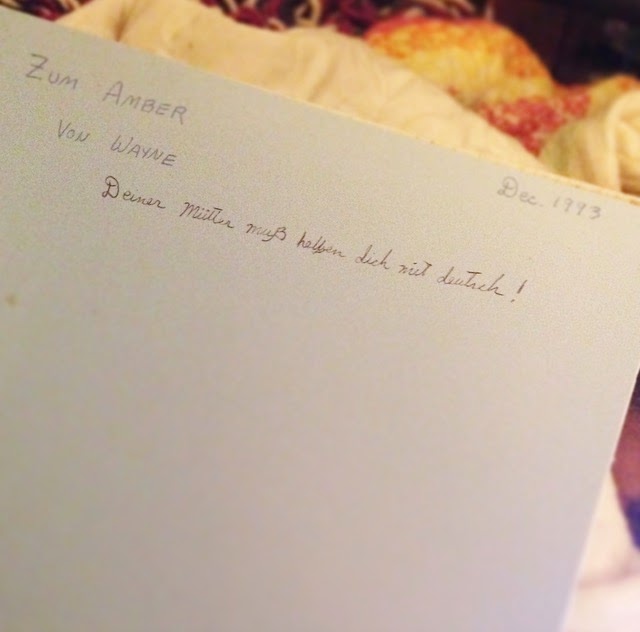 Zum Amber
Von Wayne
Dec. 1993
Deiner Mütter muß helfen dich mit deutsch!